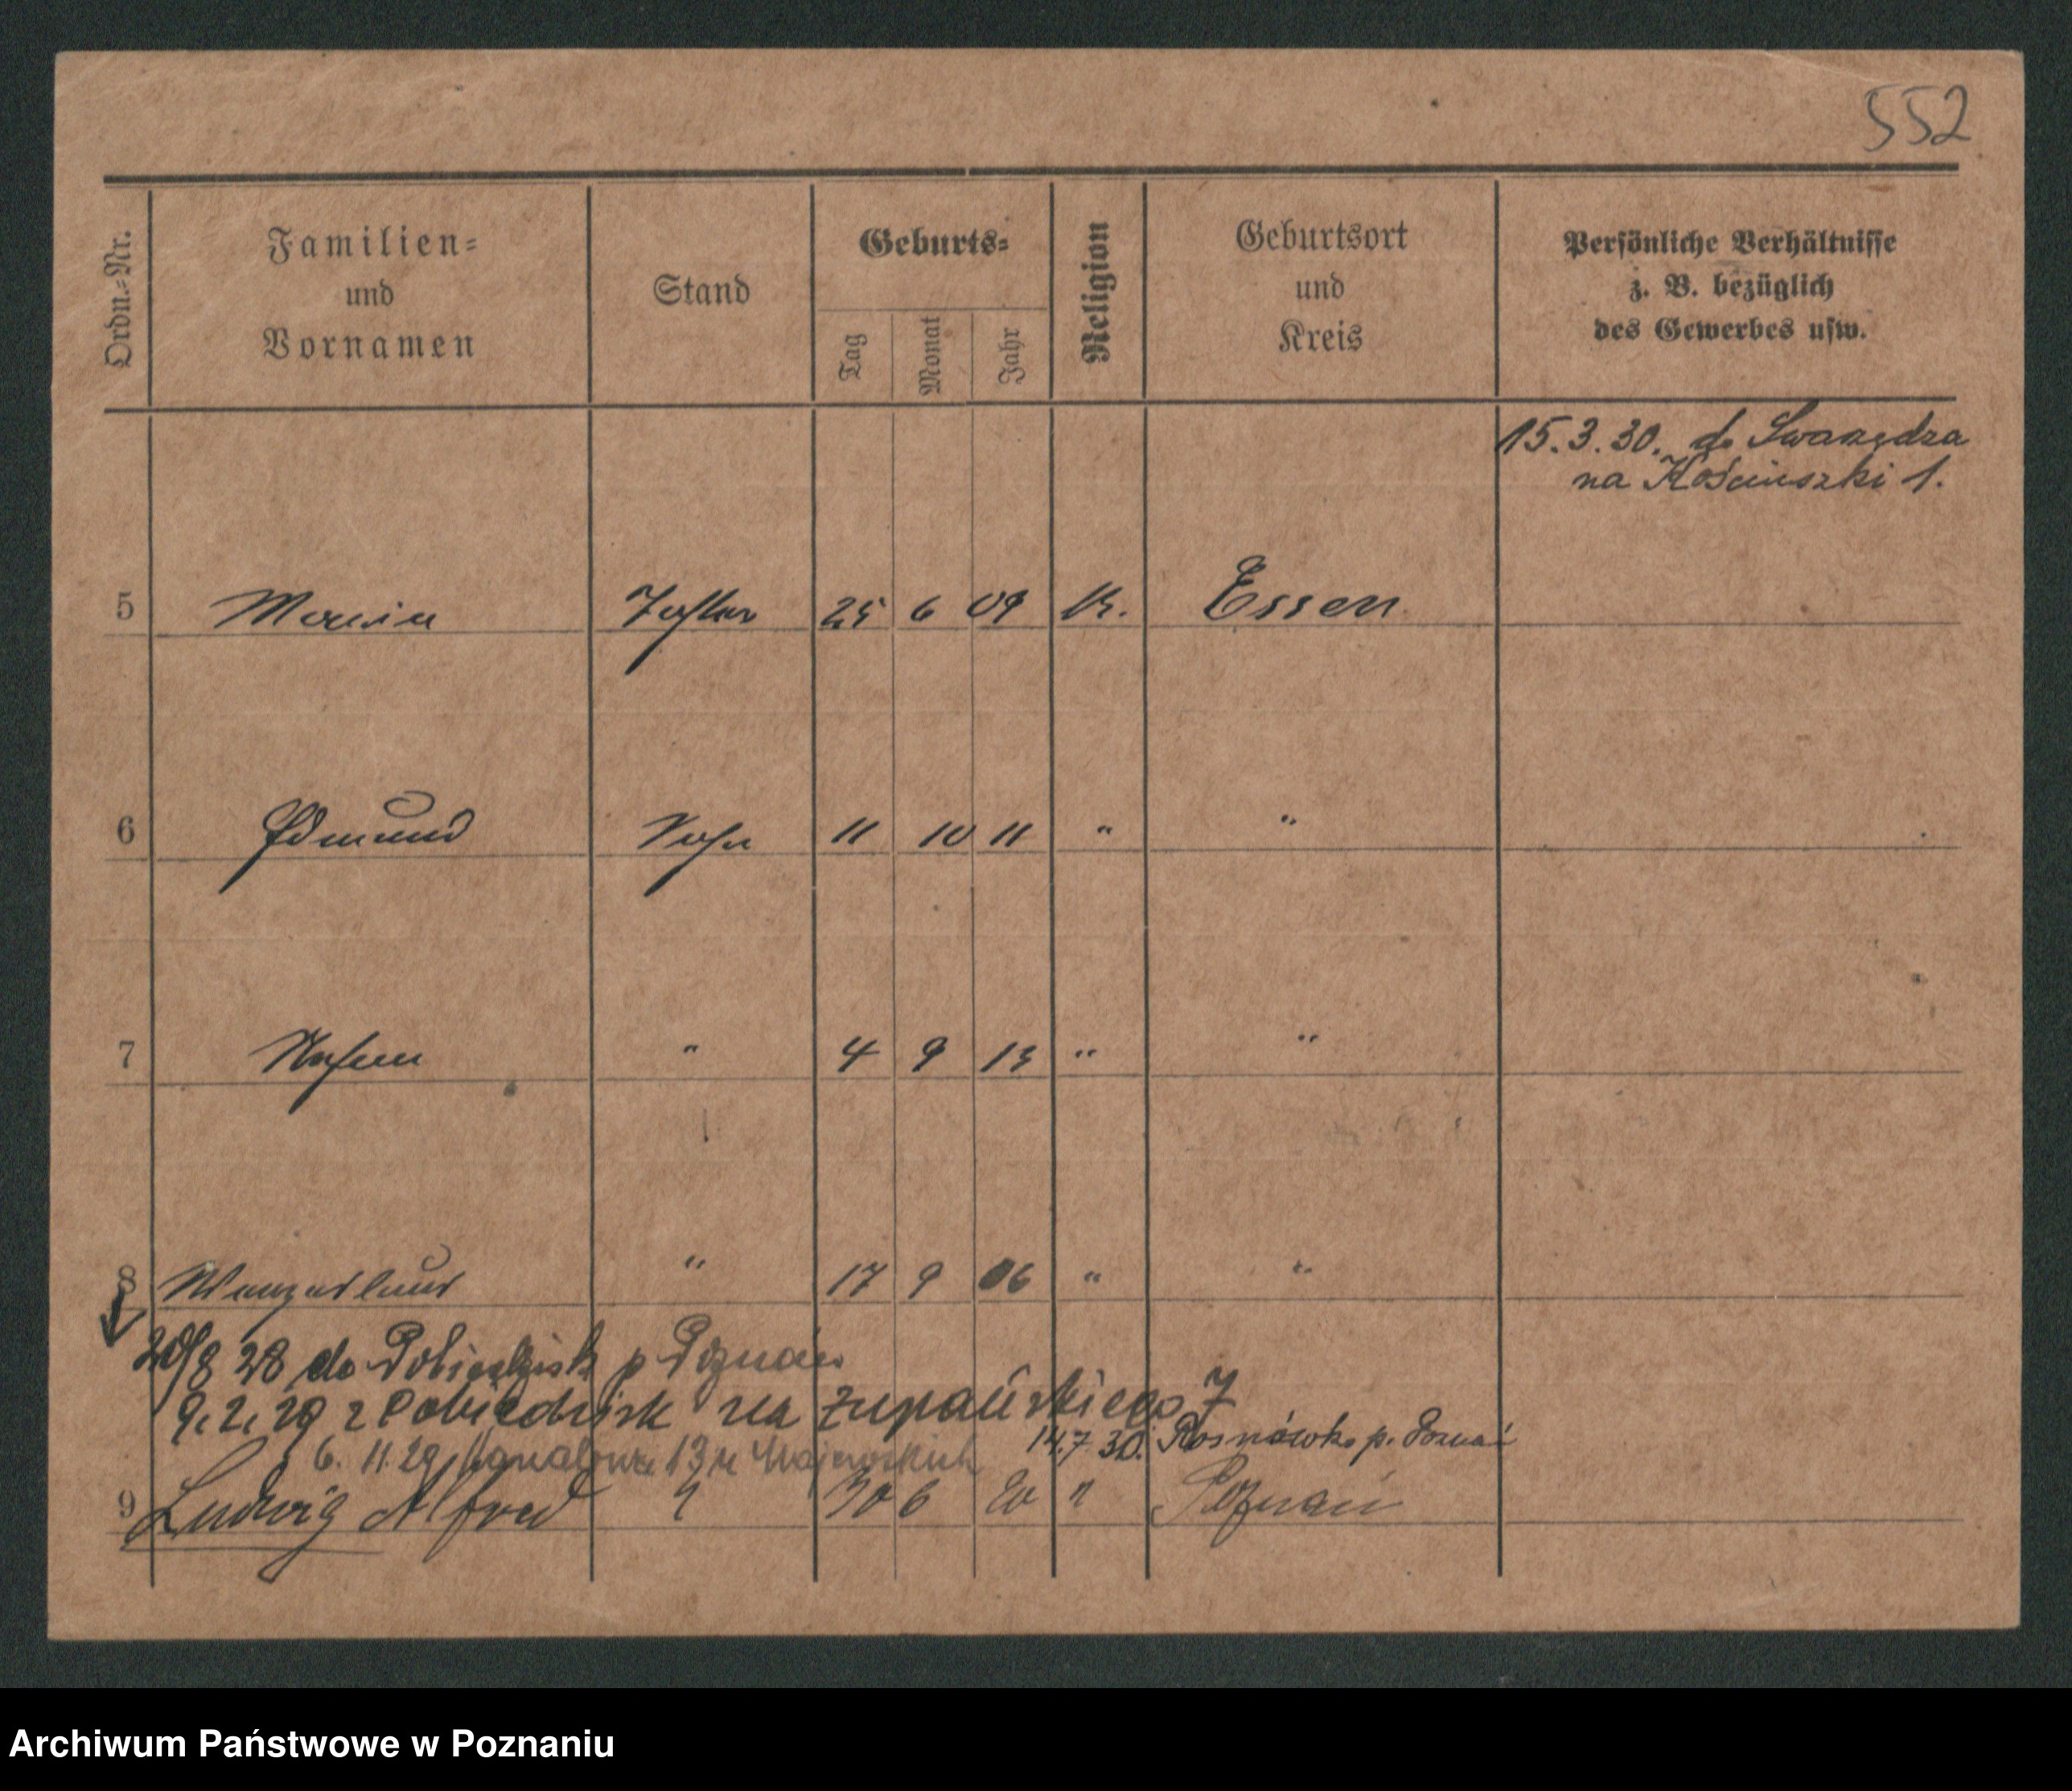 552
Ordn.-Nr.
Familien-
und
Vornamen
Stand
Geburts-
Tag
Monat
Jahr
Religion
Geburtsort
und
Kreis
Persönliche Verhältnisse
z. B. bezüglich
des Gewerbes usw.
15.3.30. do Swarzędza
na Kościuszki 1.
5 Tochter 25 6 09 K. Essen
6 Edmund Sohn 11 10 11 " "
7 Stefan " 4 9 13 " "
8 " 17 9 06 " "
20/8 28 do Pobiedzisk p Poznań
9.2.29 z Pobiedzisk na Żupańskiego 7
6. 11. 29 13 u Majewskich
14.7.30. Rosnówko p. Poznań
9 Ludwig Alfred " 30 6 20 " Poznań
Archiwum Państwowe w Poznaniu